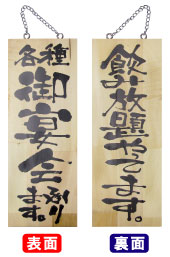 各種
御宴会
承り
ます。
飲み放題やてます。
表面
裏面